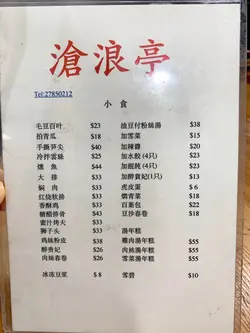 滄浪亭
Tel:27850212
小食
毛豆百叶 $23
拍青瓜 $18
手撕笋尖 $40
冷拌雲絲 $25
燻魚 $44
大排 $21
焗肉 $33
红烧软排 $31
香酥鸡 $33
糖醋排骨 $43
蜜汁烤夫 $33
狮子头 $33
鸡絲粉皮 $38
醉贵妃 $21
肉絲春卷 $18
冰冻豆浆 $8
油豆付粉絲湯 $38
加雪菜 $15
加辣醬 $20
加水餃 (4只) $23
加餛飩 (4只) $23
加醉貴妃(1只) $21
虎皮蛋 $6
煸青菜 $18
百葉包 $22
豆沙春卷 $18
湯年糕
雞肉湯年糕 $55
肉絲湯年糕 $55
雪菜湯年糕 $55
雪碧 $10